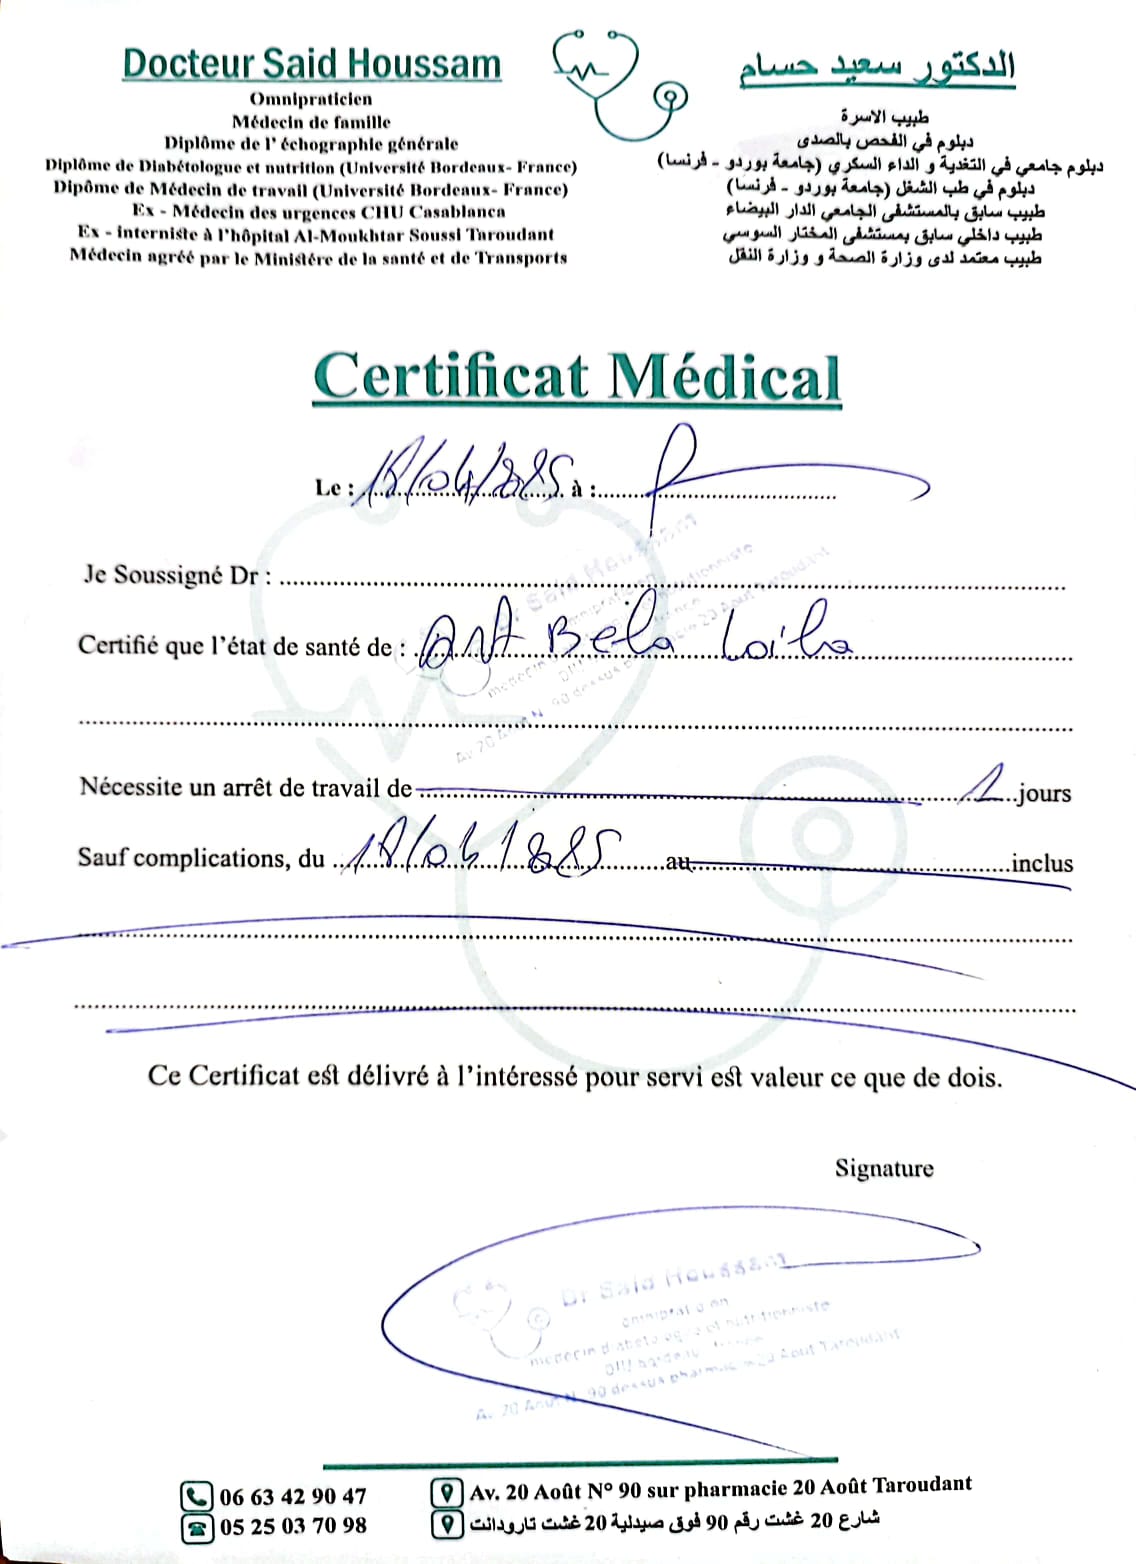 Docteur Said Houssam
Omnipraticien
Médecin de famille
Diplôme de l' échographie générale
Diplôme de Diabétologue et nutrition (Université Bordeaux- France)
Dipôme de Médecin de travail (Université Bordeaux- France)
Ex - Médecin des urgences CHU Casablanca
Ex - interniste à l'hôpital Al-Moukhtar Soussi Taroudant
Médecin agréé par le Ministére de la santé et de Transports
الدكتور سعيد حسام
طبيب الاسرة
دبلوم في الفحص بالصدى
دبلوم جامعي في التغدية و الداء السكري (جامعة بوردو - فرنسا)
دبلوم في طب الشغل (جامعة بوردو - فرنسا)
طبيب سابق بالمستشفى الجامعي الدار البيضاء
طبيب داخلي سابق بمستشفى المختار السوسي
طبيب معتمد لدى وزارة الصحة و وزارة النقل
Certificat Médical
Le : 18/04/ à :
Je Soussigné Dr :
Certifié que l'état de santé de : Bela
Nécessite un arrêt de travail de 1 jours
Sauf complications, du 18/04/ au inclus
Ce Certificat est délivré à l'intéressé pour servi est valeur ce que de dois.
Signature
Dr Said Houssam
omnipraticien
medecin diabetologue et nutritionniste
Av 20 Aout N 90 dessus pharmacie 20 Aout Taroudant
06 63 42 90 47
05 25 03 70 98
Av. 20 Août N° 90 sur pharmacie 20 Août Taroudant
شارع 20 غشت رقم 90 فوق صيدلية 20 غشت تارودانت